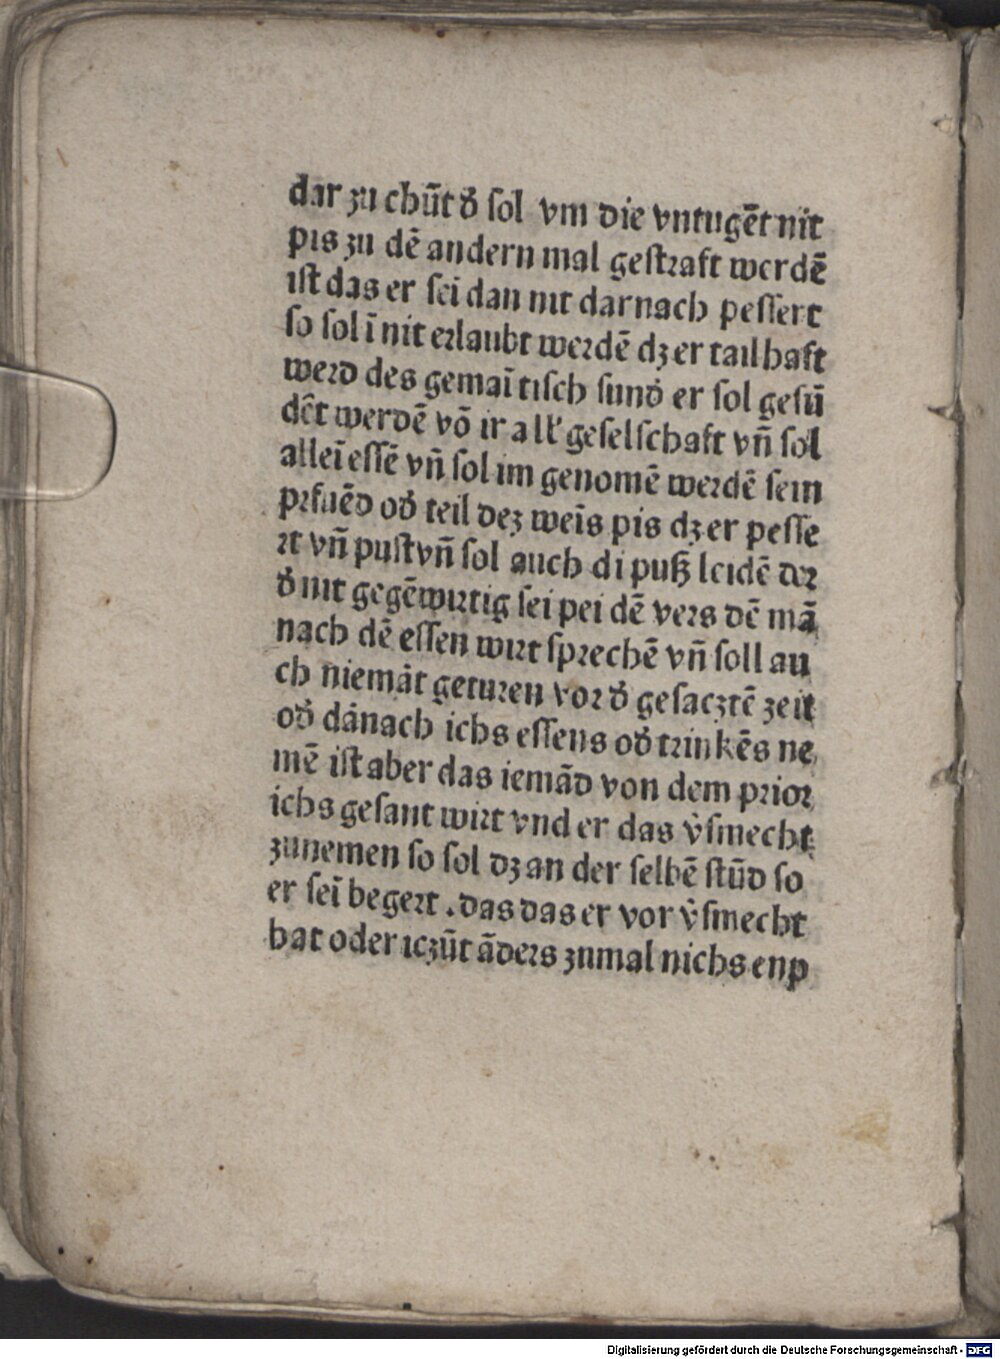 dar zu chūt d̄ ſol vm die vntugēt nit
pis zu dē andern mal geſtraft werdē
iſt das er ſei dan nit darnach peſſert
ſo ſol ī nit erlaubt werdē dz er tailhaft
werd des gemaī tiſch ſund̄ er ſol geſū
dēt werdē vō ir all' geſelſchaft vn̄ ſol
alleī eſſē vn̄ ſol im genomē werdē ſein
pꝛfuēd od̄ teil dez weīs pis dz er peſſe
ꝛt vn̄ puſt vn̄ ſol auch di puſz leidē der
d̄ nit gegēwirtig ſei pei dē vers dē mā
nach dē eſſen wirt ſpꝛechē vn̄ ſoll au
ch niemāt getuꝛen voꝛ d̄ geſacztē zeit
od̄ dānach ichs eſſens od̄ tꝛinkēs ne
mē iſt aber das iemād von dem pꝛioꝛ
ichs geſant wiꝛt vnd er das v̄ſmecht
zunemen ſo ſol dz an der ſelbē ſtūd ſo
er ſeī begeꝛt .das das er vor v̄ſmecht
hat oder iczūt āders zumal nichs enp
Digitalisierung gefördert durch die Deutsche Forschungsgemeinschaft - DFG